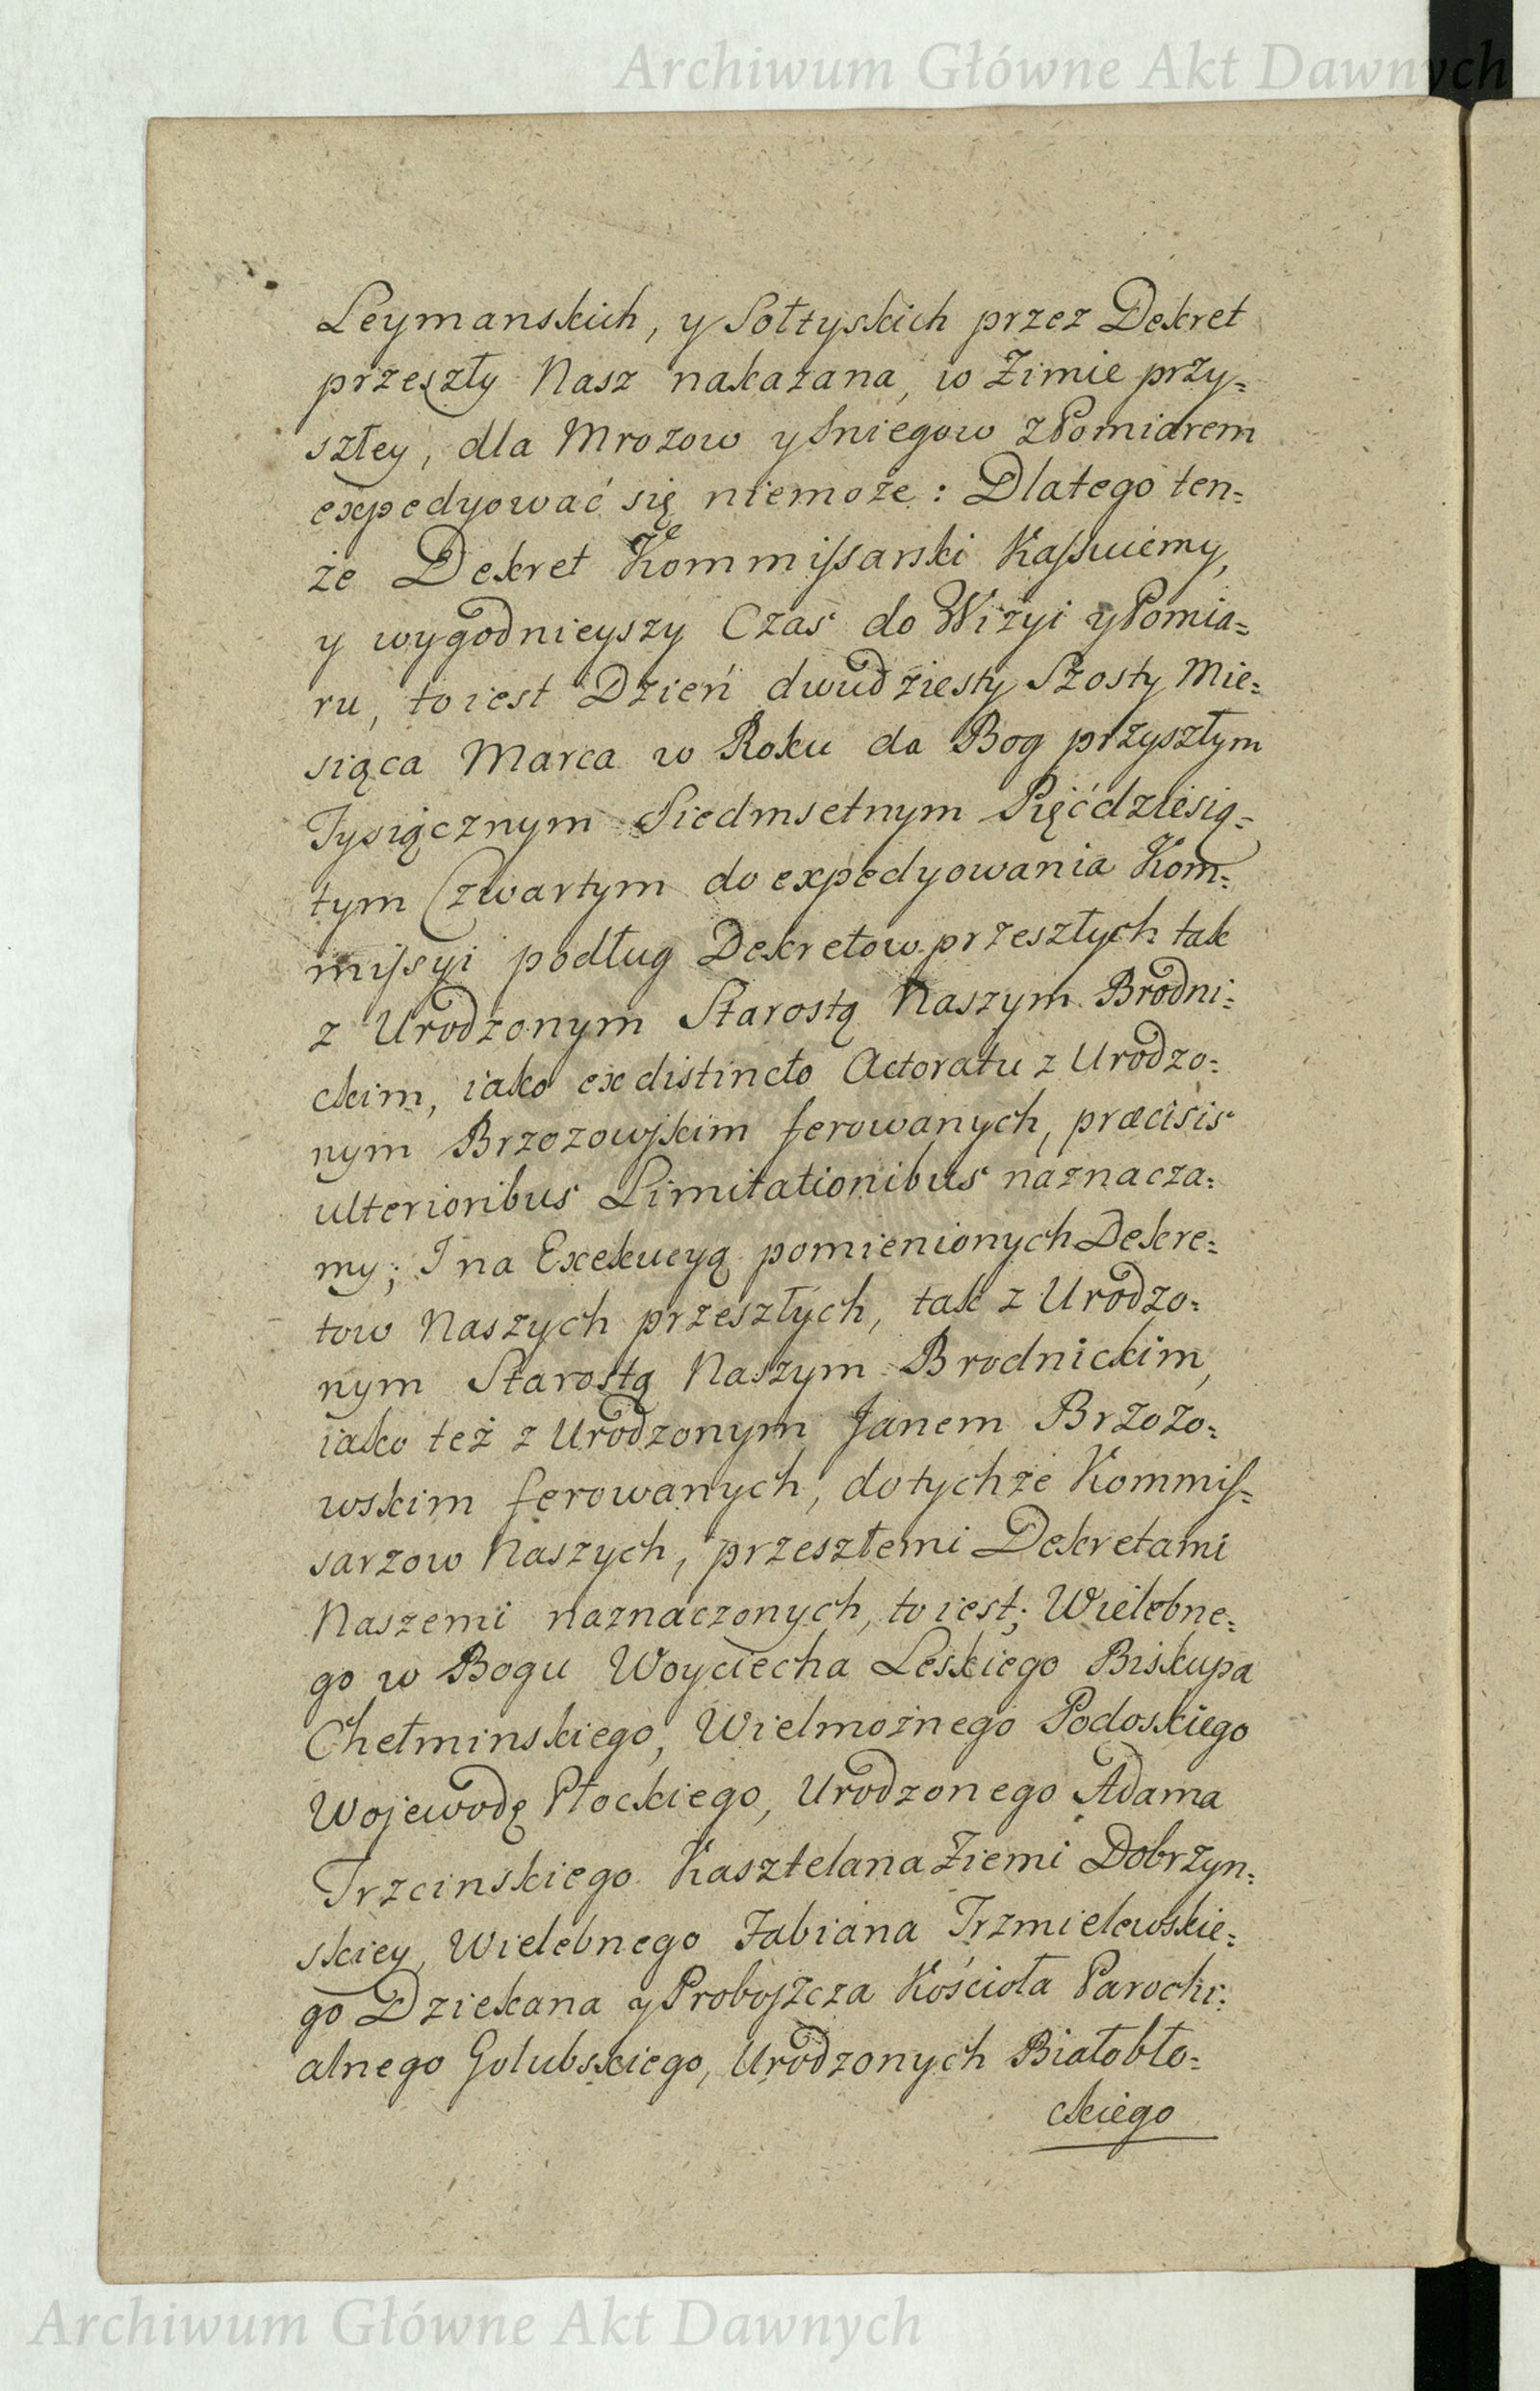 Archiwum Główne Akt Dawnych
Leymanskich, y Sołtyskich przez Dekret
przeszły Nasz nakazana, w Zimie przy=
szłey, dla Mrozow y Sniegow z Pomiarem
expedyować się niemoże: Dlatego ten=
że Dekret Kommissarski Kassuiemy,
y wygodnieyszy Czas do Wizyi y Pomia=
ru, to iest Dzień dwudziesty Szosty Mie=
siąca Marca w Roku da Bog przyszłym
Tysiącznym Siedmsetnym Pięćdziesią=
tym Czwartym do expedyowania Kom=
missyi podług Dekretow przeszłych tak
z Urodzonym Starostą Naszym Brodni=
ckim, iako ex distincto Actoratu z Urodzo=
nym Brzozowskim ferowanych, præcisis
ulterioribus Limitationibus naznacza=
my; I na Exekucyą pomienionych Dekre=
tow Naszych przeszłych, tak z Urodzo=
nym Starostą Naszym Brodnickim,
iako też z Urodzonym Janem Brzozo=
wskim ferowanych, do tychże Kommis=
sarzow Naszych, przeszłemi Dekretami
Naszemi naznaczonych, to iest; Wielebne=
go w Bogu Woyciecha Leskiego Biskupa
Chełminskiego, Wielmożnego Podoskiego
Wojewodę Płockiego, Urodzonego Adama
Trzcinskiego Kasztelana Ziemi Dobrzyn=
skiey, Wielebnego Fabiana Trzmielewskie=
go Dziekana y Proboszcza Kościoła Parochi=
alnego Golubskiego, Urodzonych Białobło=
ckiego
Archiwum Główne Akt Dawnych